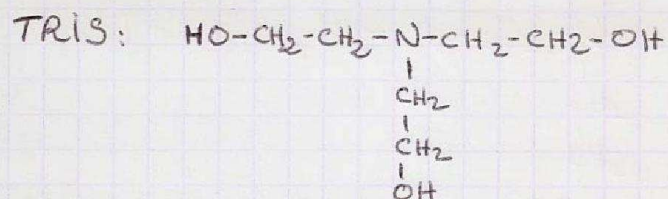 TRIS: HO-CH2-CH2-N-CH2-CH2-OH
CH2
CH2
OH